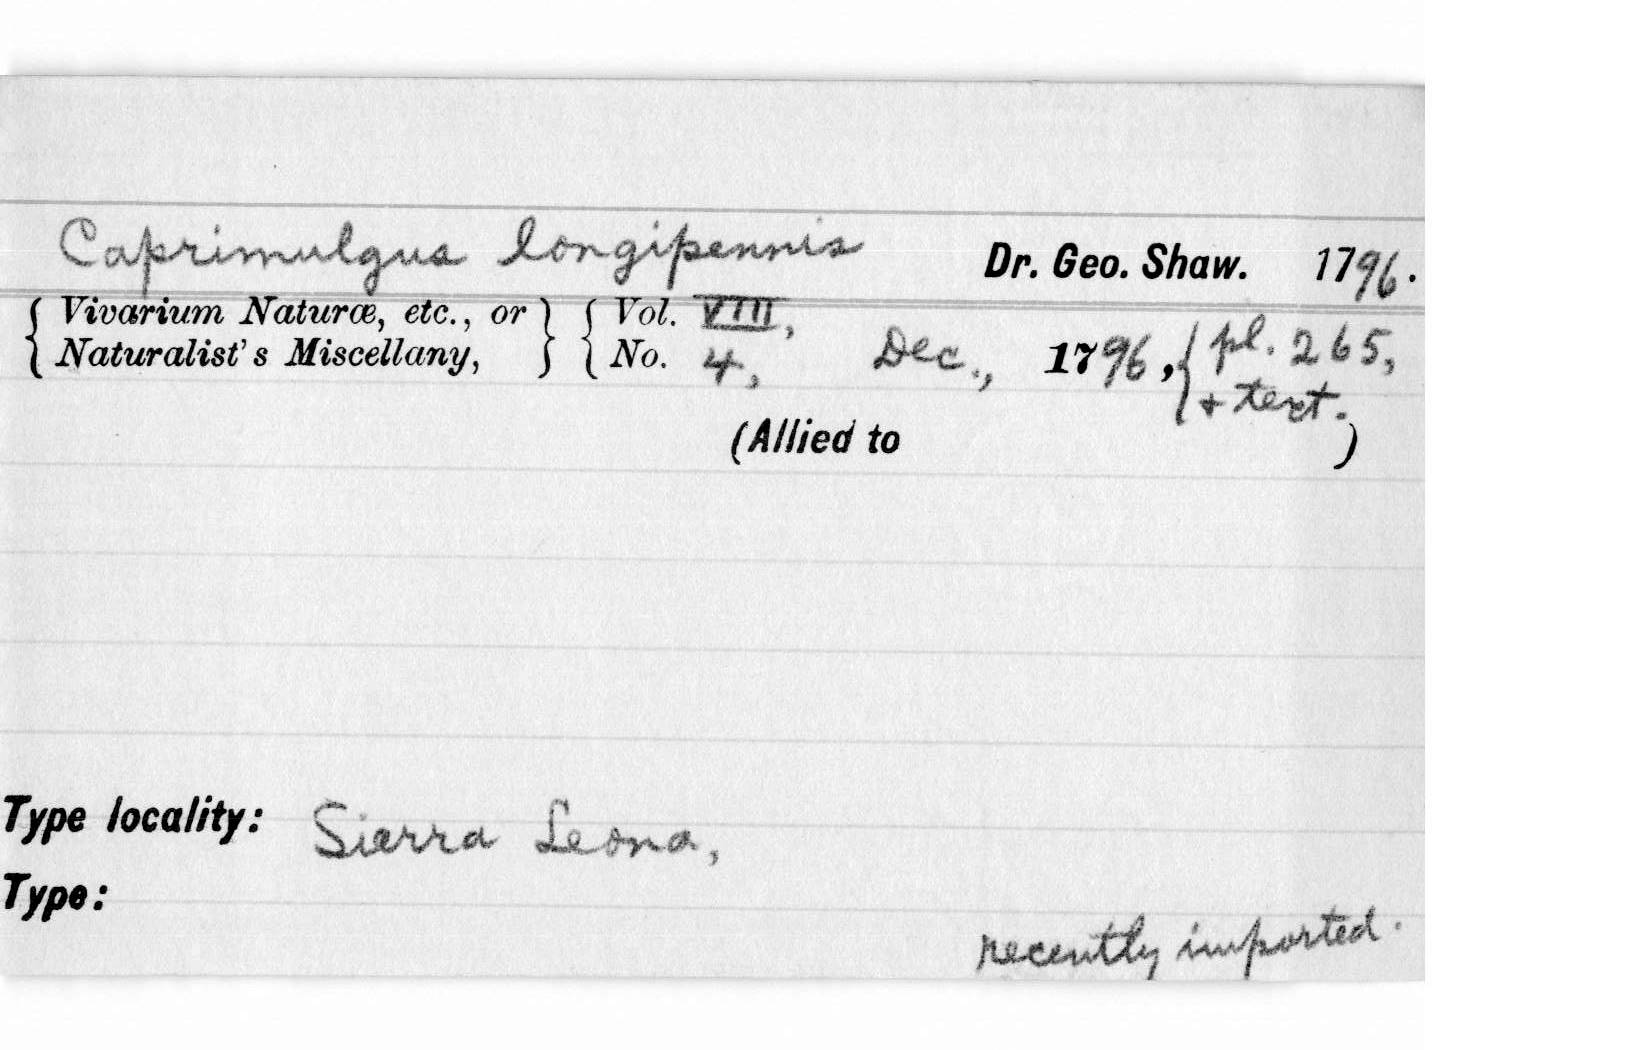 Caprimulgus longipennis Dr. Geo. Shaw. 1796.
{ Vivarium Naturæ, etc., or } { Vol. VIII,
{ Naturalist's Miscellany, } { No. 4, Dec., 1796, { pl. 265,
+ text.
(Allied to )
Type locality: Sierra Leona,
Type:
recently imported.